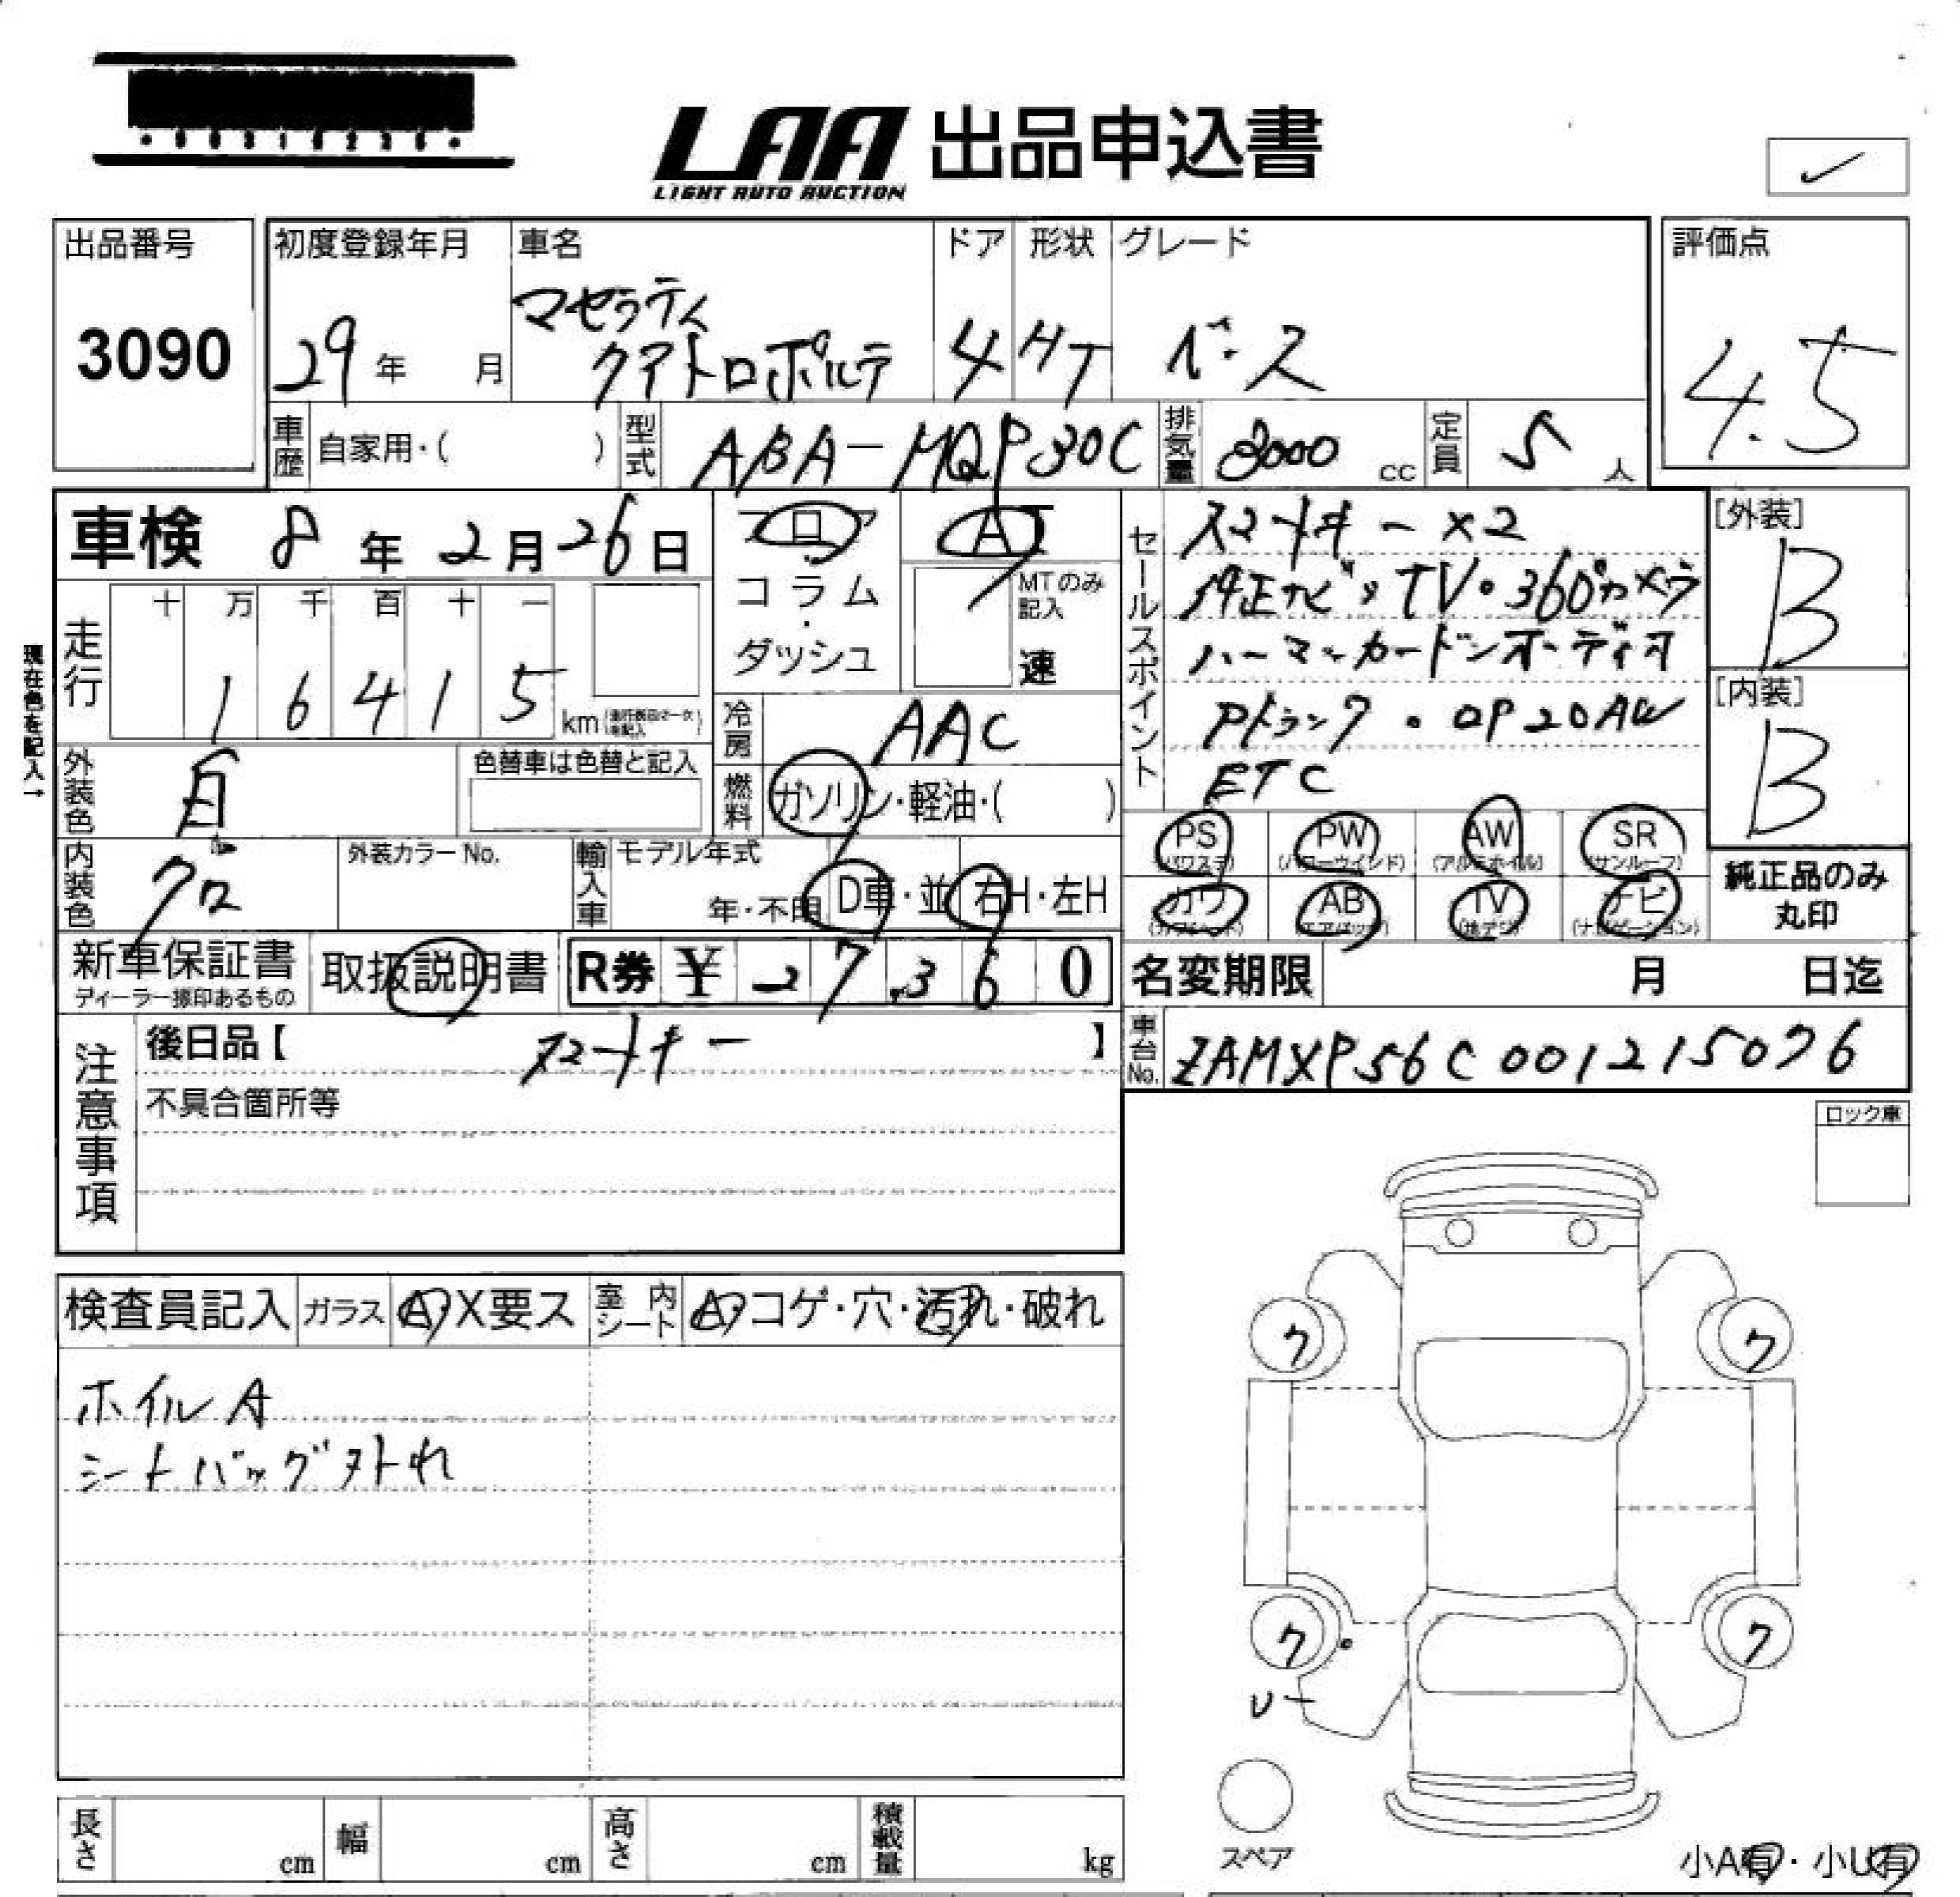 LAA 出品申込書
LIGHT AUTO AUCTION
出品番号
3090
初度登録年月
29年 月
車名
マセラティ
クアトロポルテ
ドア
4
形状
HT
グレード
ベース
評価点
4.5
車歴 自家用・( )
型式 ABA-MQP30C
排気量 3000 cc
定員 5 人
車検 8年2月26日
現在色を記入→
走行 十 万 千 百 十 一
1 6 4 1 5 km
フロア
コラム
・
ダッシュ
AT
MTのみ
記入
速
冷房 AAC
燃料 ガソリン・軽油・( )
外装色 白
色替車は色替と記入
内装色 クロ
外装カラーNo.
輸入車 モデル年式
年・不明 D車・並 右H・左H
セールスポイント
スマートキー ×2
純正ナビ TV・360°カメラ
ハーマンカードンオーディオ
Pトランク・OP20AW
ETC
[外装]
B
[内装]
B
PS PW AW SR
(パワステ) (パワーウインド) (アルミホイル) (サンルーフ)
カワ AB TV ナビ
(エアバッグ) (地デジ) (ナビゲーション)
純正品のみ
丸印
新車保証書
ディーラー捺印あるもの
取扱説明書
R券 ¥ 27,360
名変期限 月 日迄
車台No. ZAMXP56C001215076
注意事項
後日品【 スマートキー 】
不具合箇所等
ロック車
検査員記入 ガラス A・X要ス 室内シート A・コゲ・穴・汚れ・破れ
ホイルA
シートバッグ外れ
ク ク
ク ク
U
スペア
小A有・小U有
長さ cm 幅 cm 高さ cm 積載量 kg